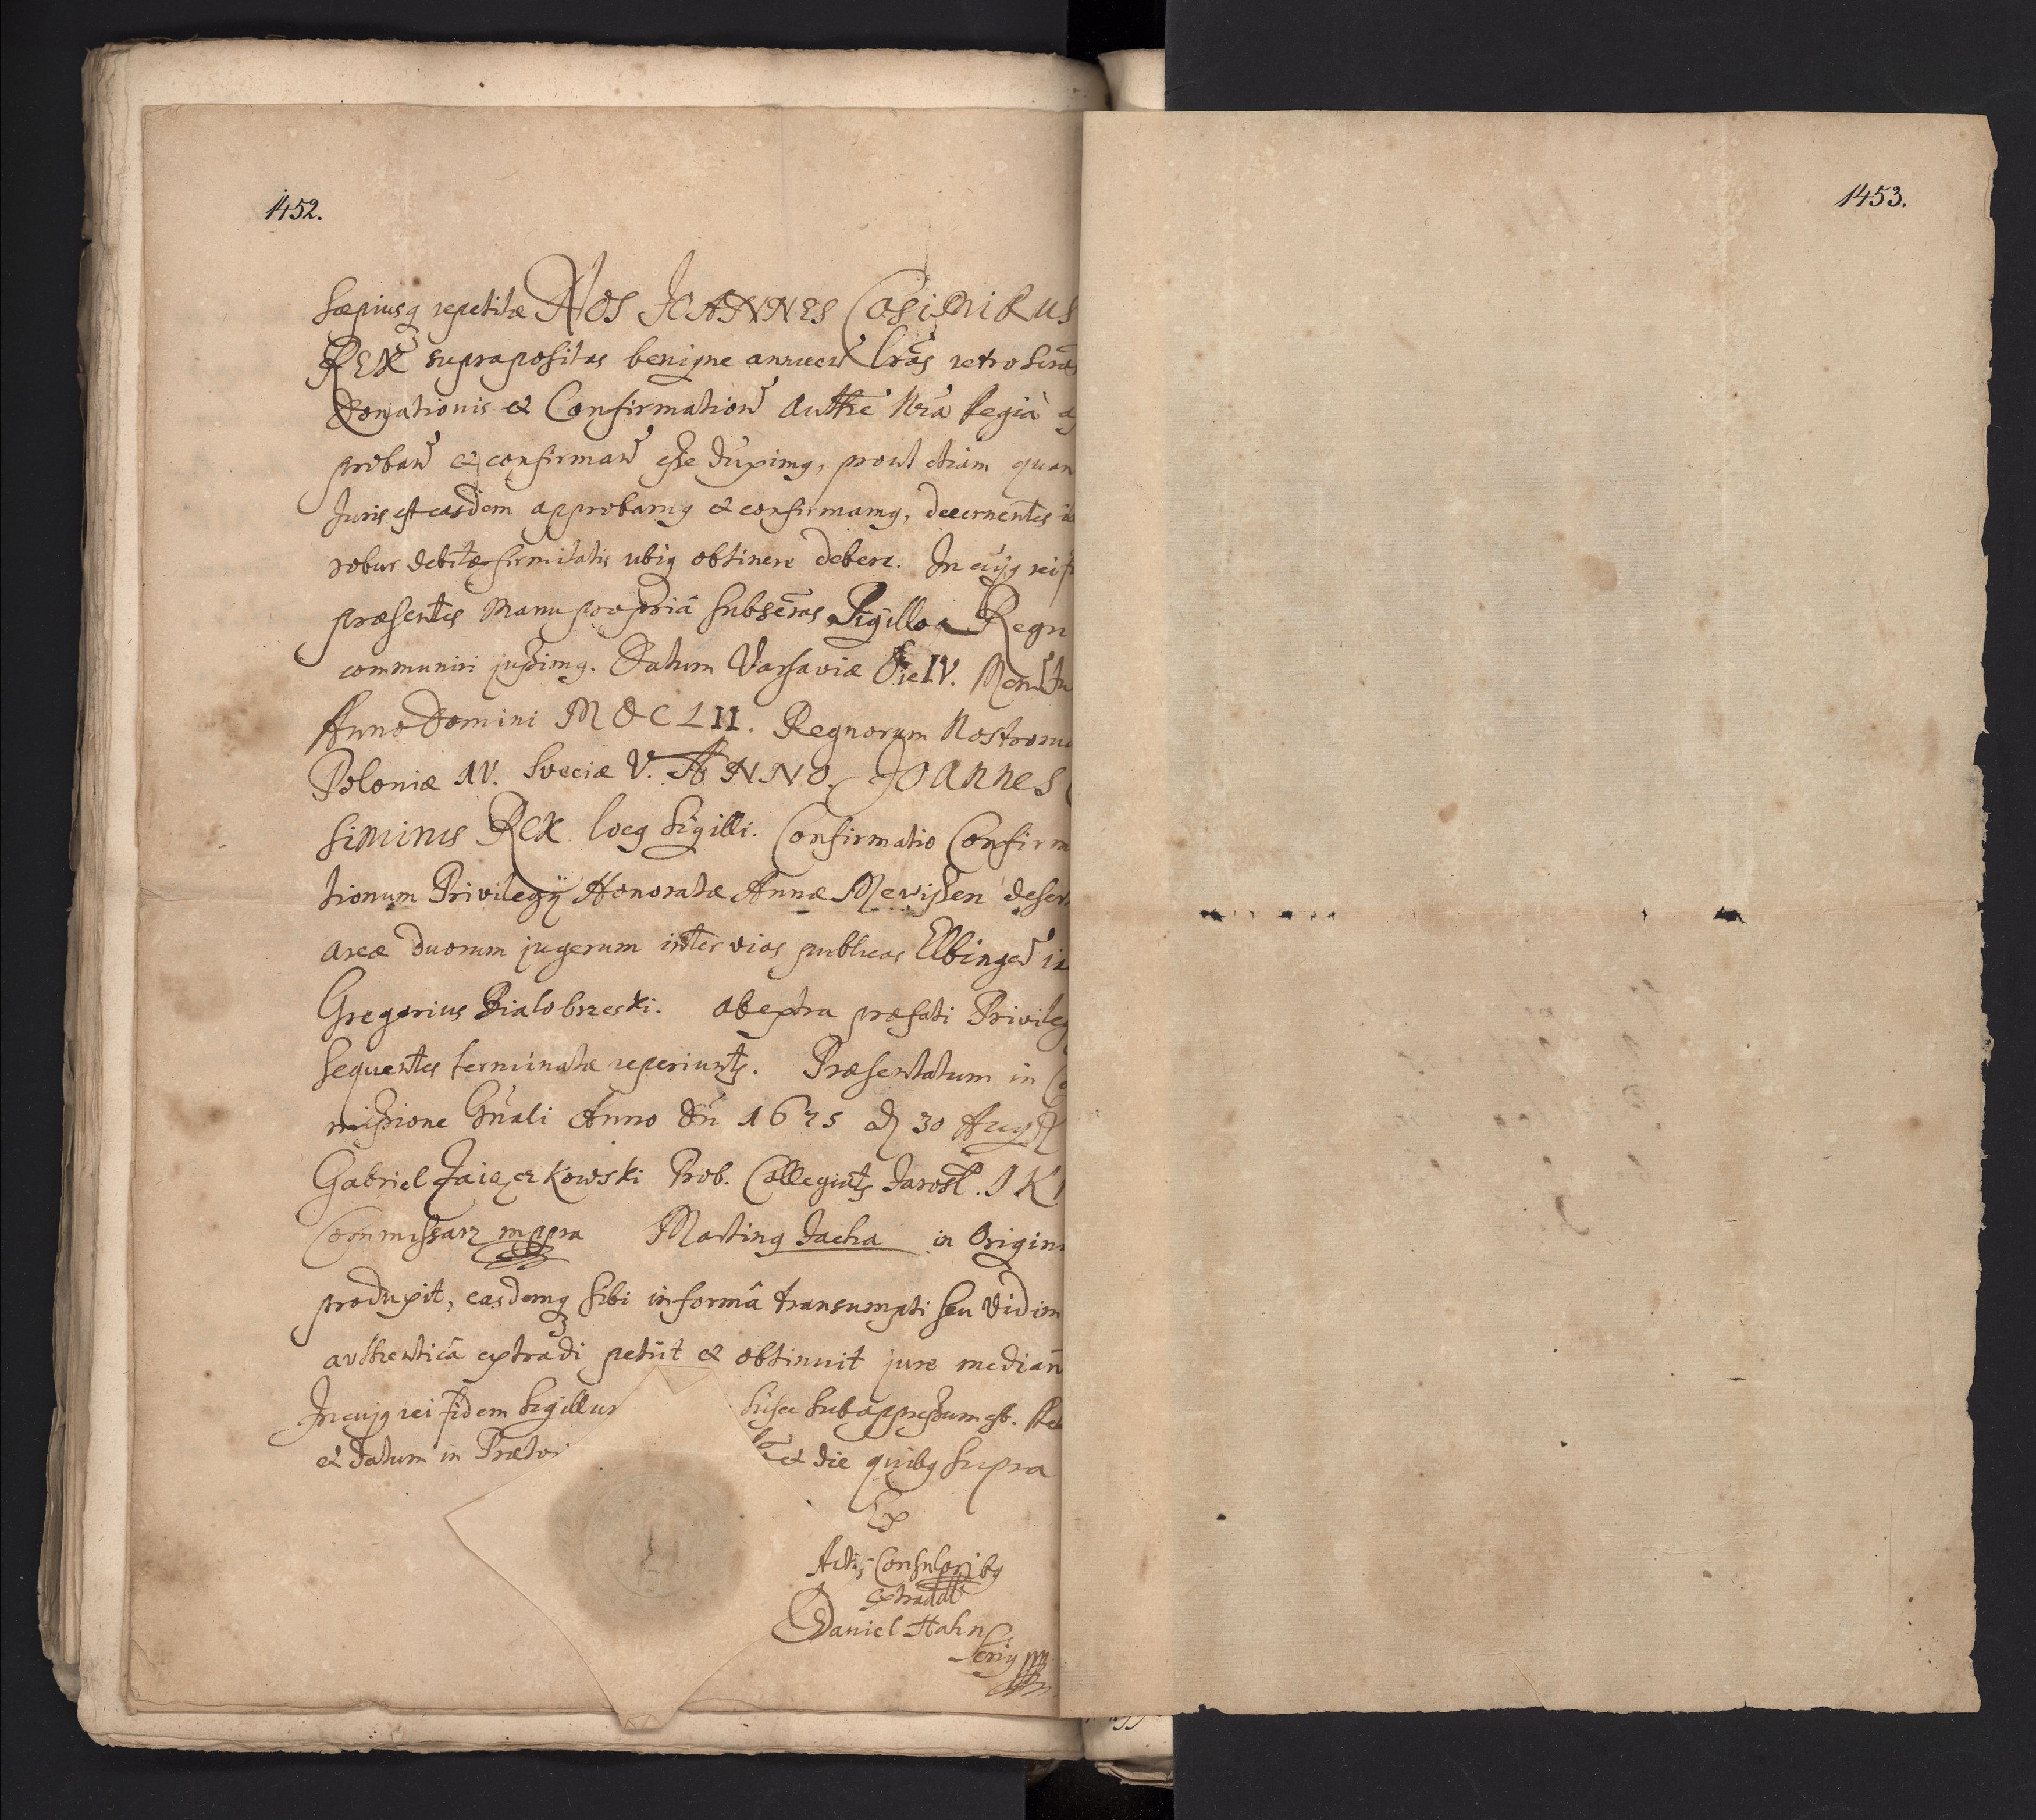 1452.
1453.
Sæpiusq repetitæ NOS JOANNES CASIMIRUS
REX supra positas benigne annuen Lrãs retro
Donationis & Confirmation Authẽ Nrã Regiâ
proban & confirman esse duximq, prout etiam quan
Juris est easdem approbamq & confirmamq, decernentes
robur debitæ firmitatis ubiq obtinere debere. In cujq rei
præsentes Manu propriâ subscras Sigillo Regn
communiri jussimq. Datum Varsaviæ Die IV. Men
Anno Domini MDCLII. Regnorum Nostrorum
Poloniæ IV. Sveciæ V. ANNO. JOANNES
SIMIRUS REX Locq Sigilli. Confirmatio Confirm
tionum Privilegÿ Honoratæ Annæ Mevissen deser
areæ duorum jugerum inter vias publicas Elbingen
Gregorius Bialobrzeski. ab extra præfati Privileg
Sequentes terminatæ reperiunt. Præsentatum in Co
missione Gñali Anno Dñi 1675 d 30 Aug
Gabriel Zaiączkowski Præb. Collegiat Jarosl. J K
Commissarz mppra Martinq Jacha in Origin
produxit, easdemq sibi in formâ transumpti seu Vidim
authenticâ extradi petiit & obtinuit jure median
In cujq rei fidem Sigillu hisce subappressum est.
& datum in Prætor & die quibq supra
Ex
Actis Consularibq
extradit
Daniel Hahn